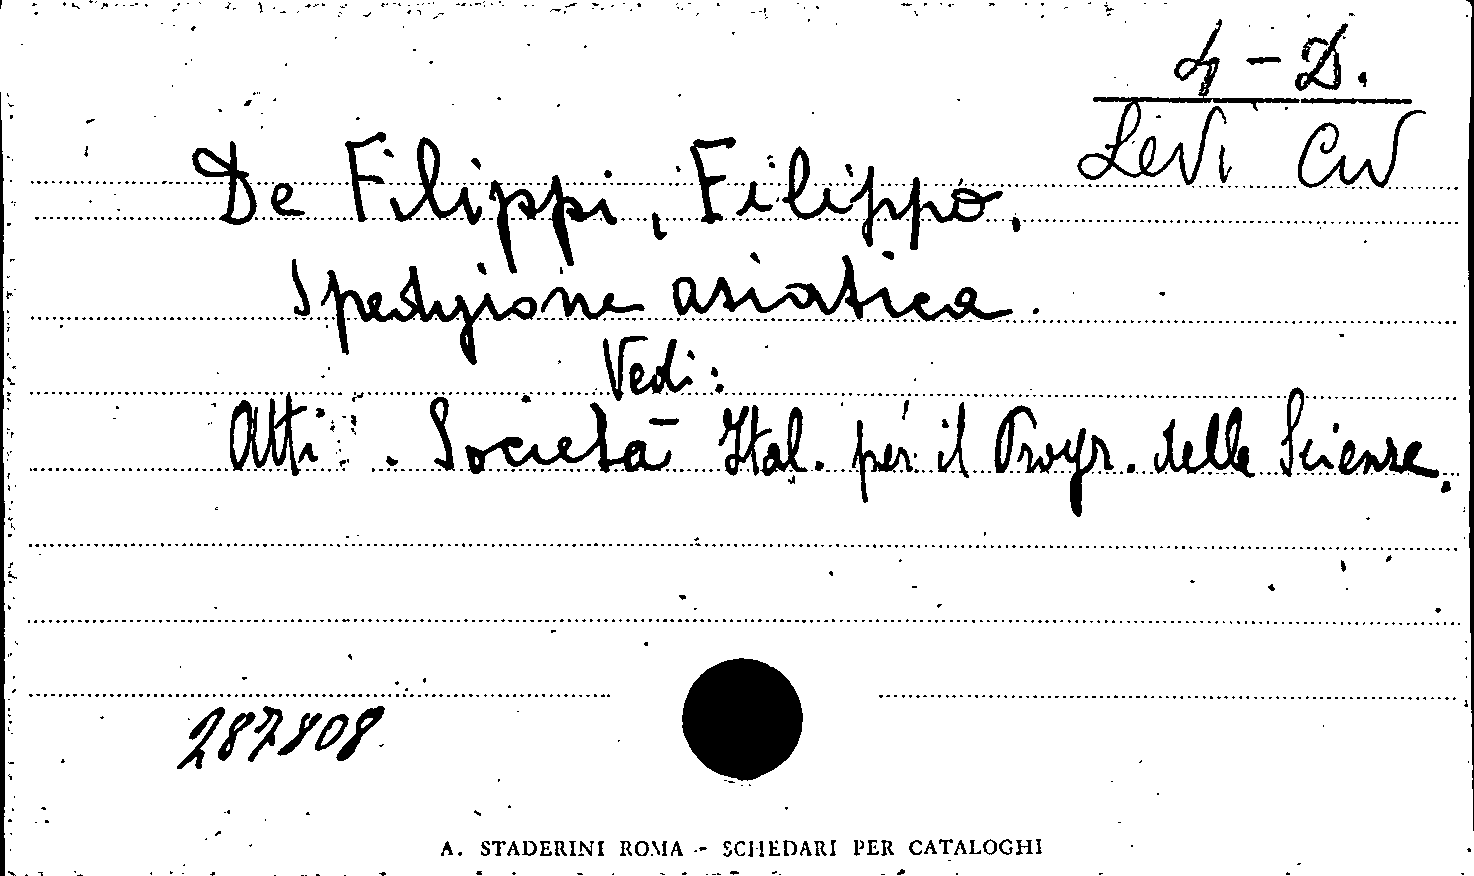 4 - D.
Levi Civ
De Filippi, Filippo.
Spedizione asiatica.
Vedi:
Atti. Società Ital. per il Progr. delle Scienze.
287808
A. STADERINI ROMA - SCHEDARI PER CATALOGHI